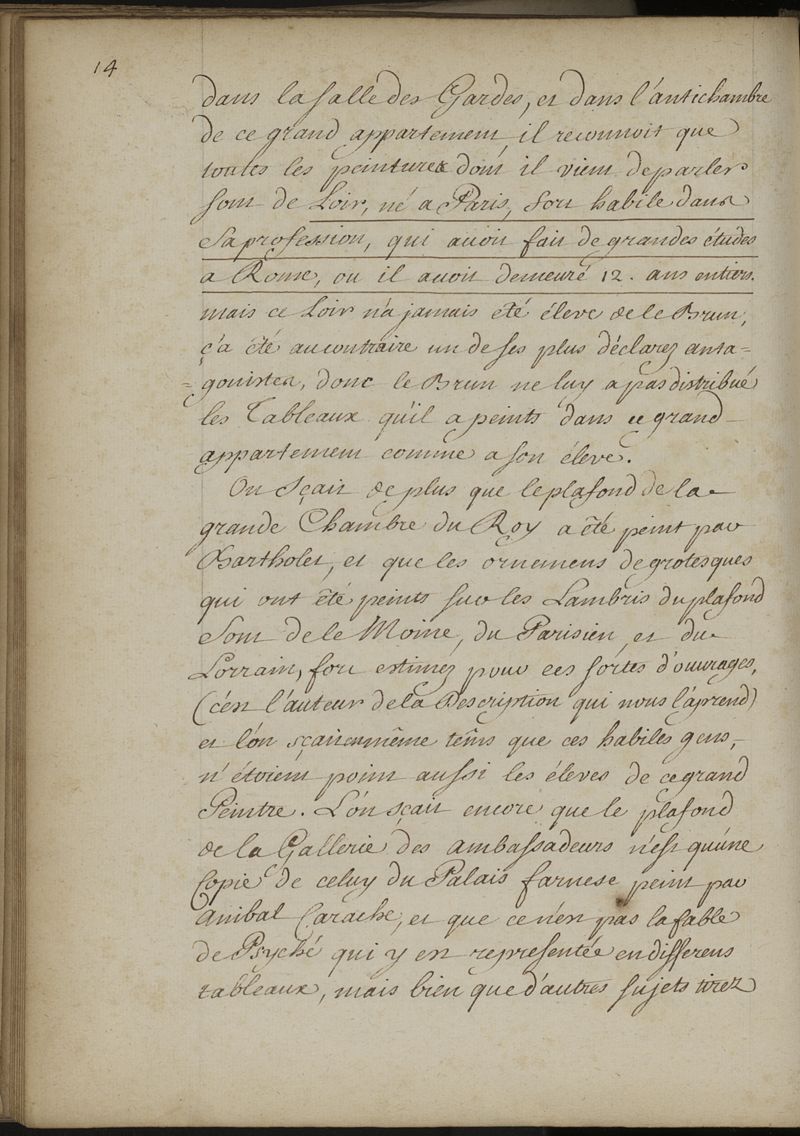 14
dans la salle des Gardes, et dans l'antichambre
de ce grand appartement, il reconnoit que
toutes les peintures dont il vient de parler
sont de Loir, né a Paris, fort habile dans
sa profession, qui avoit fait de grandes études
a Rome, ou il avoit demeuré 12. ans entiers.
mais ce Loir n'a jamais été éleve de le Brun,
ç'a été au contraire un de ses plus déclarez anta=
=gonistes, donc le Brun ne luy a pas distribué
les Tableaux qu'il a peints dans ce grand
appartement comme a son éleve.
On sçait de plus que le plafond de la
grande Chambre du Roy a été peint par
Bartholet, et que les ornemens de grotesques
qui ont été peints sur les Lambris du plafond
sont de le Moine, du Parisien, et du
Lorrain, fort estimez pour ces sortes d'ouvrages,
(c'est l'auteur de la Description qui nous l'aprend)
et l'on sçait en même tems que ces habiles gens,
n'étoient point aussi les éleves de ce grand
Peintre. L'on sçait encore que le plafond
de la Gallerie des ambassadeurs n'est qu'une
Copie de celuy du Palais farnese peint par
Anibal Carache, et que ce n'est pas la fable
de Psyché qui y est representée en differens
tableaux, mais bien que d'autres sujets tirez